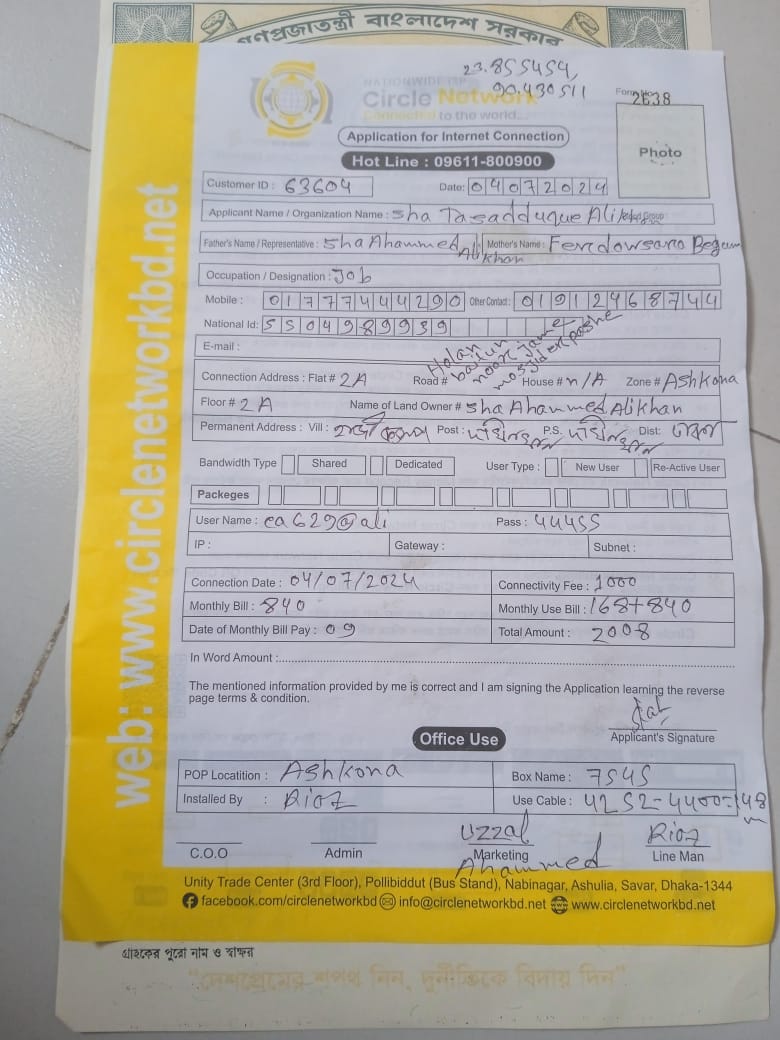 গণপ্রজাতন্ত্রী বাংলাদেশ সরকার
23.855454,
90.430511
NATIONWIDE ISP
Circle Network
Connected to the world...
Form No
2638
Photo
Application for Internet Connection
Hot Line : 09611-800900
Customer ID : 63604 Date: 04072024
Applicant Name / Organization Name : Sha Tasadduque Ali
Father's Name / Representative : Sha Ahammed Ali Khan Mother's Name : Ferdowsara Begum
Occupation / Designation : Job
Mobile : 01777444290 Other Contact : 01912468744
National Id: 5504989939
E-mail :
Holan
baitun
noor jame
mosjider pashe
Connection Address : Flat # 2A Road # House # n/A Zone # Ashkona
Floor # 2A Name of Land Owner # Sha Ahammed Ali Khan
Permanent Address : Vill : Post : দক্ষিনখান P.S. দক্ষিনখান Dist: ঢাকা
Bandwidth Type Shared Dedicated User Type : New User Re-Active User
Packeges
User Name : ea629@ali Pass : 44455
IP : Gateway : Subnet :
Connection Date : 04/07/2024 Connectivity Fee : 1000
Monthly Bill : 840 Monthly Use Bill : 168+840
Date of Monthly Bill Pay : 09 Total Amount : 2008
In Word Amount :
The mentioned information provided by me is correct and I am signing the Application learning the reverse
page terms & condition.
Applicant's Signature
Office Use
POP Locatition : Ashkona Box Name : 7545
Installed By : Rioz Use Cable : 4252-4400=148 m
Uzzal Rioz
C.O.O Admin Marketing Line Man
Ahammed
Unity Trade Center (3rd Floor), Pollibiddut (Bus Stand), Nabinagar, Ashulia, Savar, Dhaka-1344
facebook.com/circlenetworkbd info@circlenetworkbd.net www.circlenetworkbd.net
web: www.circlenetworkbd.net
গ্রাহকের পুরো নাম ও স্বাক্ষর
"দেশপ্রেমের শপথ নিন, দুর্নীতিকে বিদায় দিন"